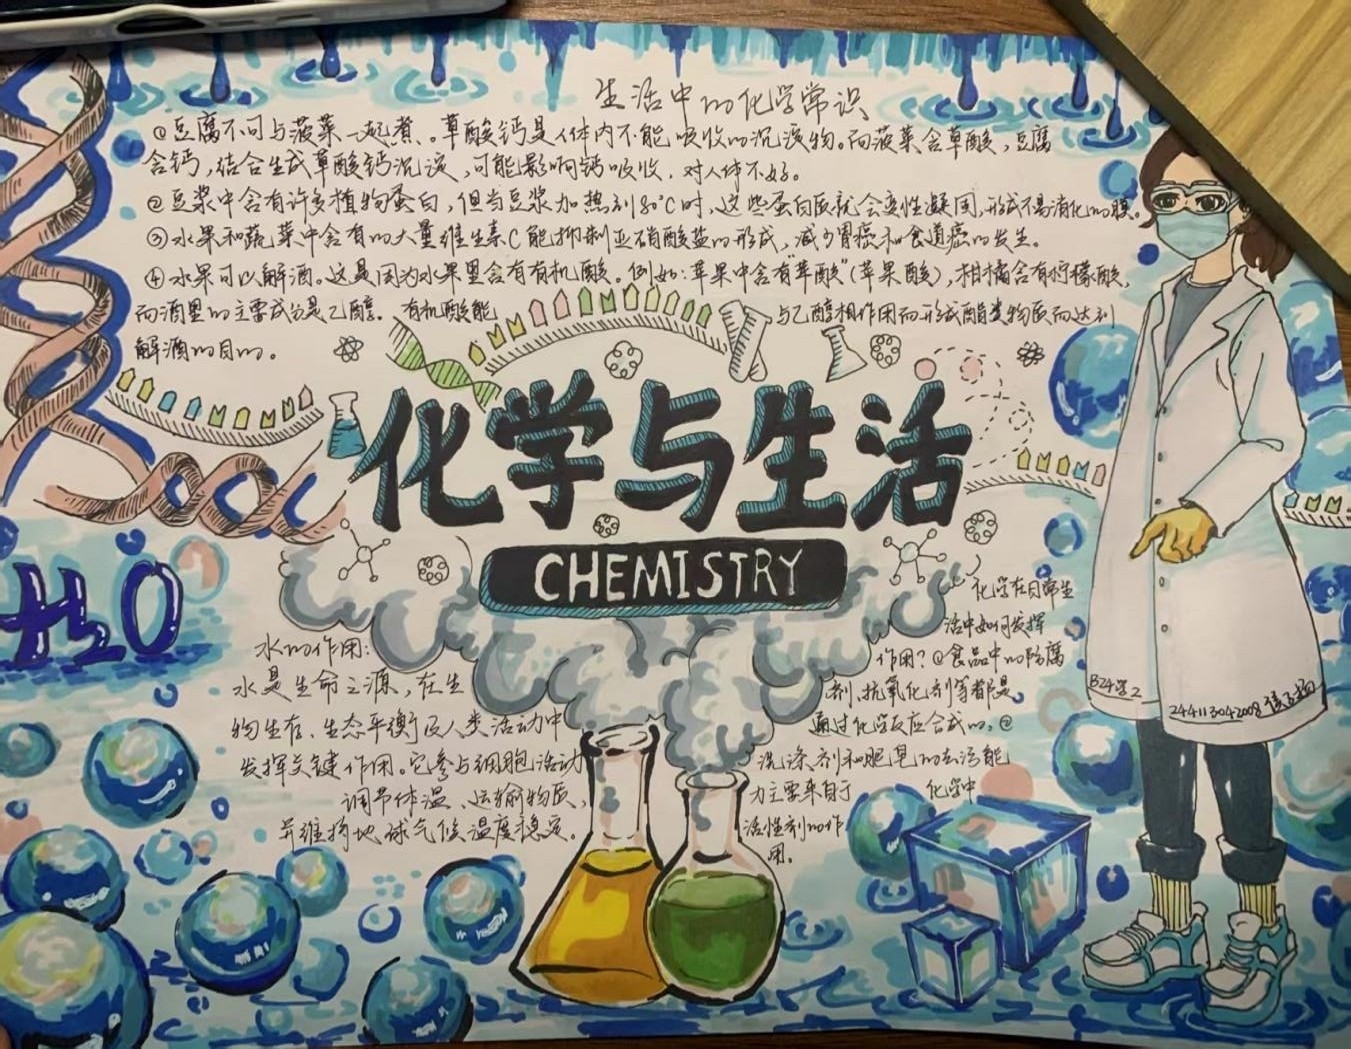 生活中的化学常识
①豆腐不可与菠菜一起煮。草酸钙是人体内不能吸收的沉淀物。而菠菜含草酸,豆腐
含钙,结合生成草酸钙沉淀,可能影响钙吸收,对人体不好。
②豆浆中含有许多植物蛋白,但当豆浆加热到80℃时,这些蛋白质就会变性凝固,形成不易消化的膜。
③水果和蔬菜中含有的大量维生素C能抑制亚硝酸盐的形成,减少胃癌和食道癌的发生。
④水果可以解酒。这是因为水果里含有有机酸。例如:苹果中含有“苹酸”(苹果酸),柑橘含有柠檬酸,
而酒里的主要成分是乙醇。有机酸能与乙醇相作用而形成酯类物质而达到
解酒的目的。
化学与生活
CHEMISTRY
H2O
水的作用:
水是生命之源,在生
物生存、生态平衡及人类活动中
发挥关键作用。它参与细胞活动
调节体温、运输物质,
并维持地球气候温度稳定。
化学在日常生
活中如何发挥
作用?①食品中的防腐
剂、抗氧化剂等都是
通过化学反应合成的,②
洗涤剂和肥皂的去污能
力主要来自于化学中
活性剂的作
用。
B24学2
244113042008